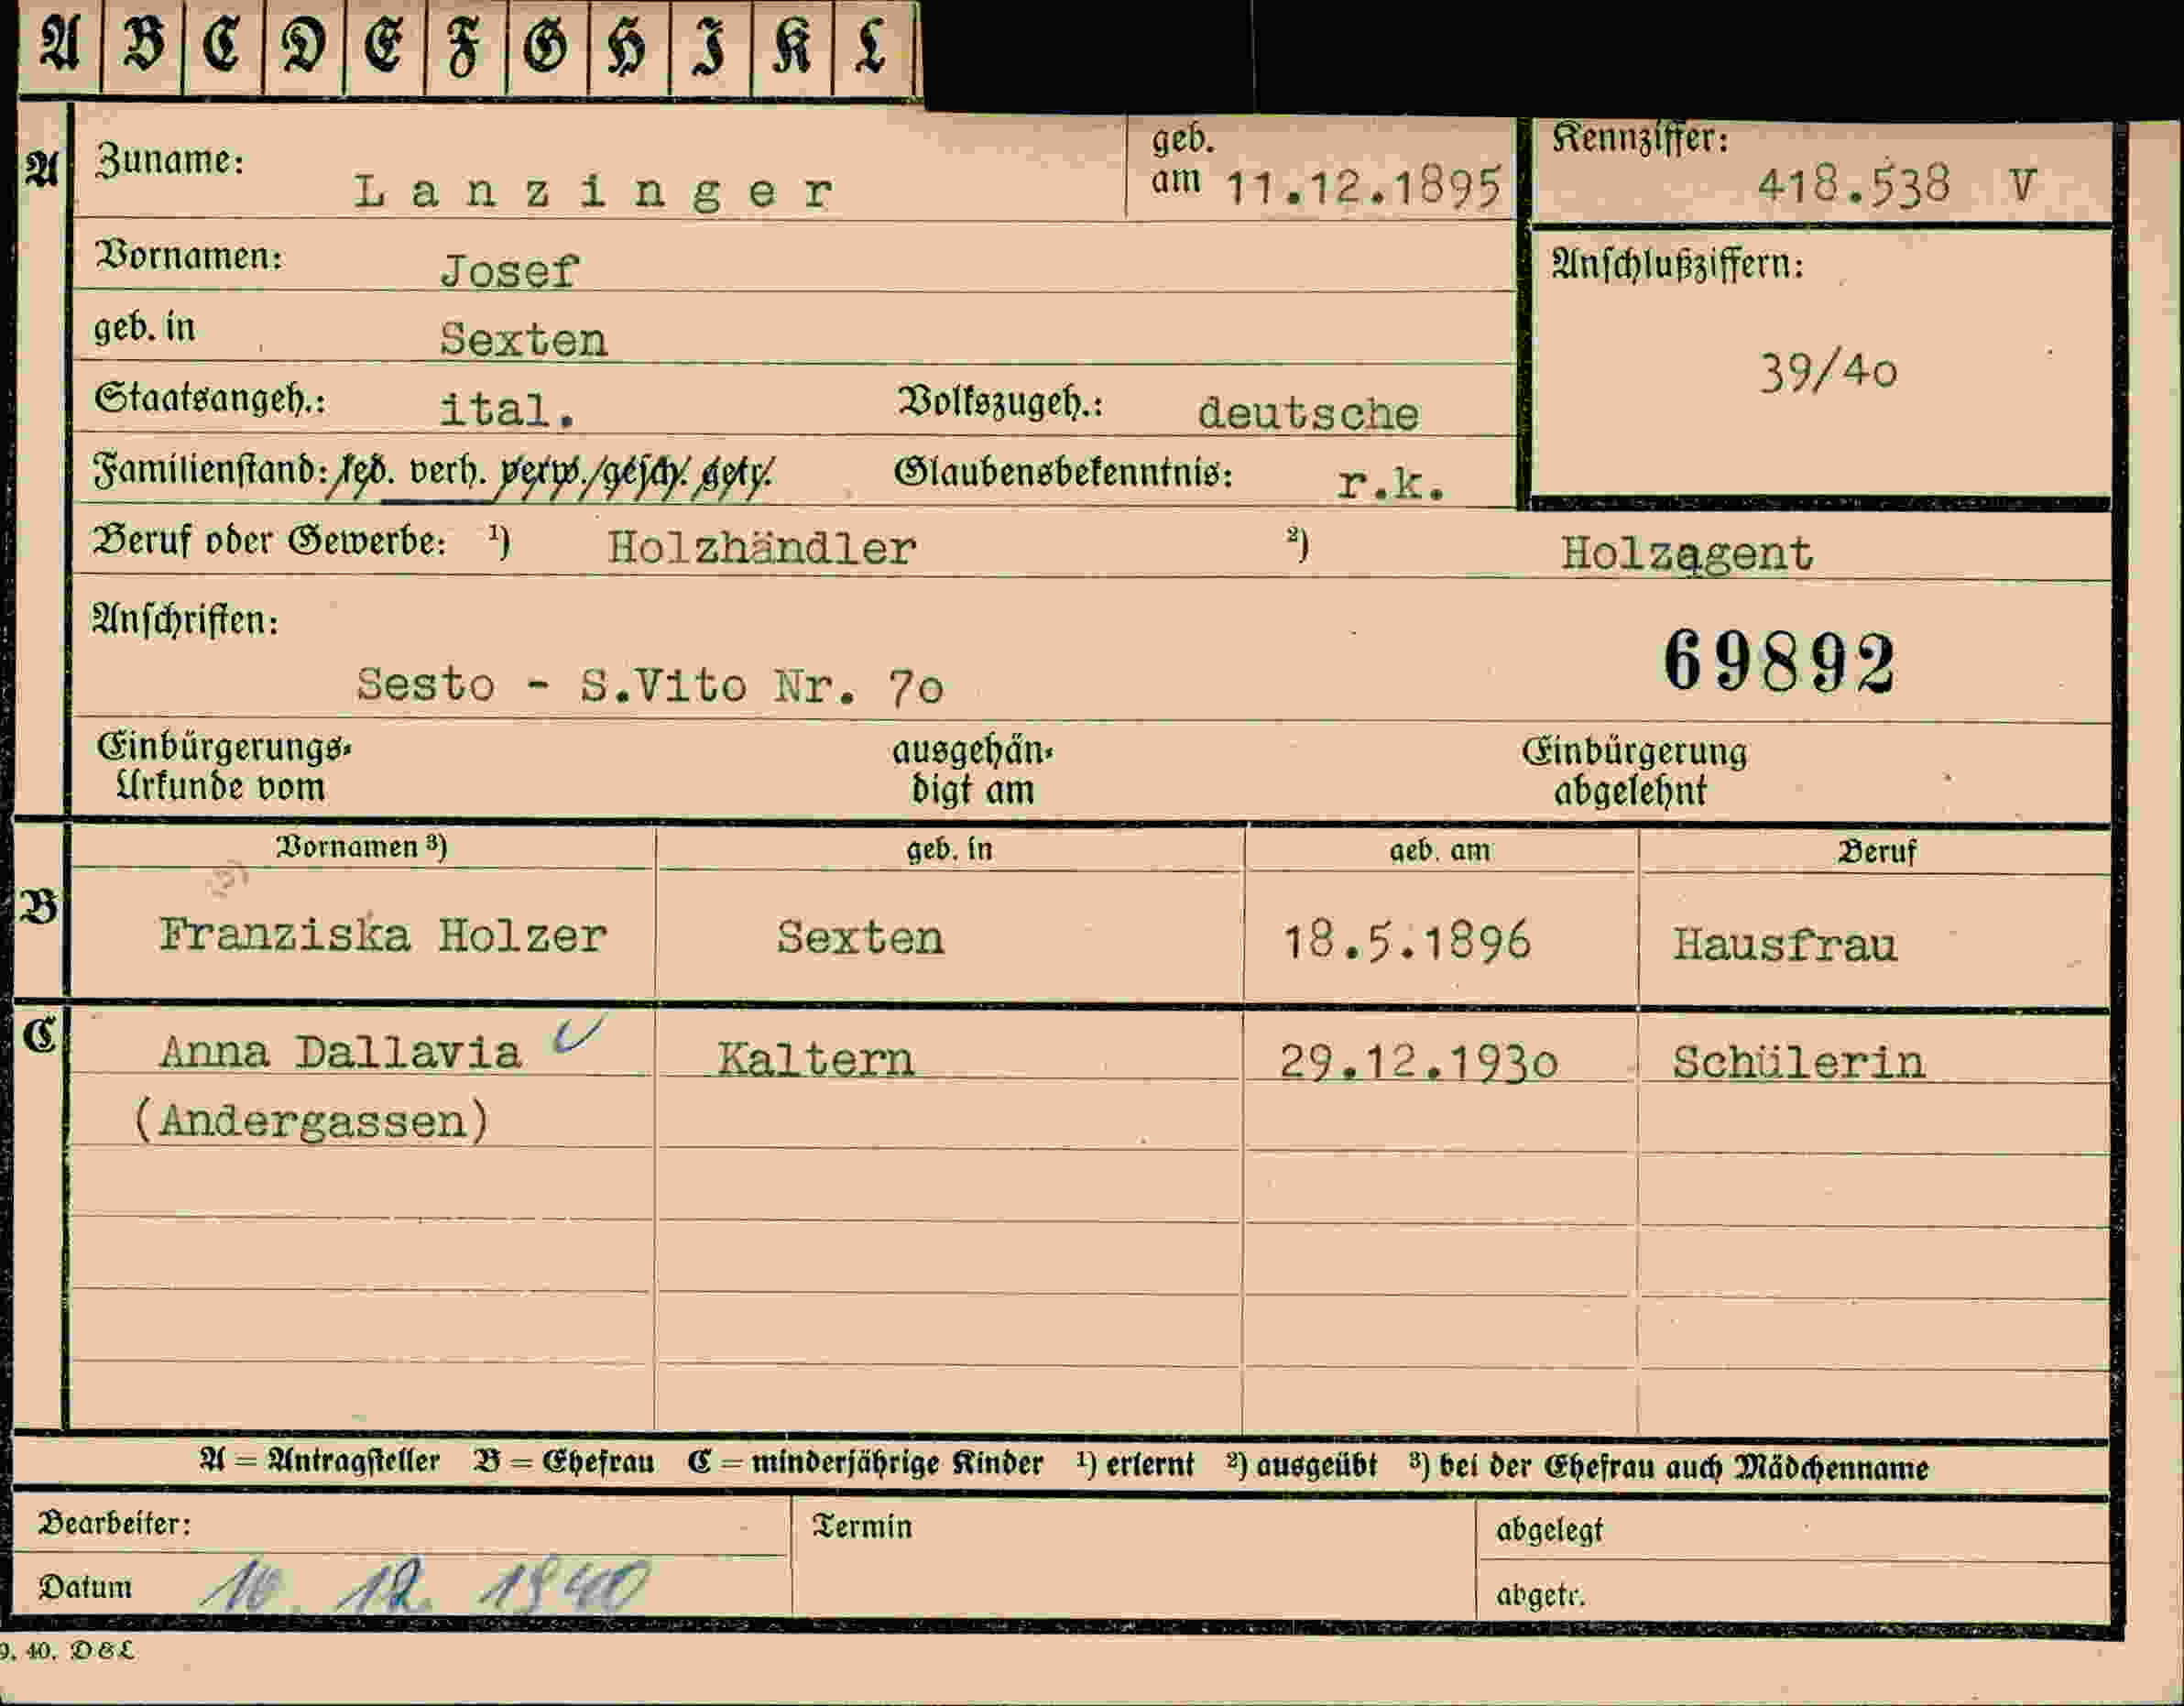 A B C D E F G H I K L
A Zuname: Lanzinger geb. am 11.12.1895 Kennziffer: 418.538 V
Vornamen: Josef Anschlußziffern:
geb. in Sexten 39/40
Staatsangeh.: ital. Volkszugeh.: deutsche
Familienstand: led. verh. verw. gesch. getr. Glaubensbekenntnis: r.k.
Beruf oder Gewerbe: ¹) Holzhändler ²) Holzagent
Anschriften:
69892
Sesto - S.Vito Nr. 70
Einbürgerungs- ausgehän- Einbürgerung
Urkunde vom digt am abgelehnt
Vornamen ³) geb. in geb. am Beruf
B Franziska Holzer Sexten 18.5.1896 Hausfrau
C Anna Dallavia Kaltern 29.12.1930 Schülerin
(Andergassen)
A = Antragsteller B = Ehefrau C = minderjährige Kinder ¹) erlernt ²) ausgeübt ³) bei der Ehefrau auch Mädchenname
Bearbeiter: Termin abgelegt
Datum 10. 12. 1940 abgetr.
9. 40. D&L